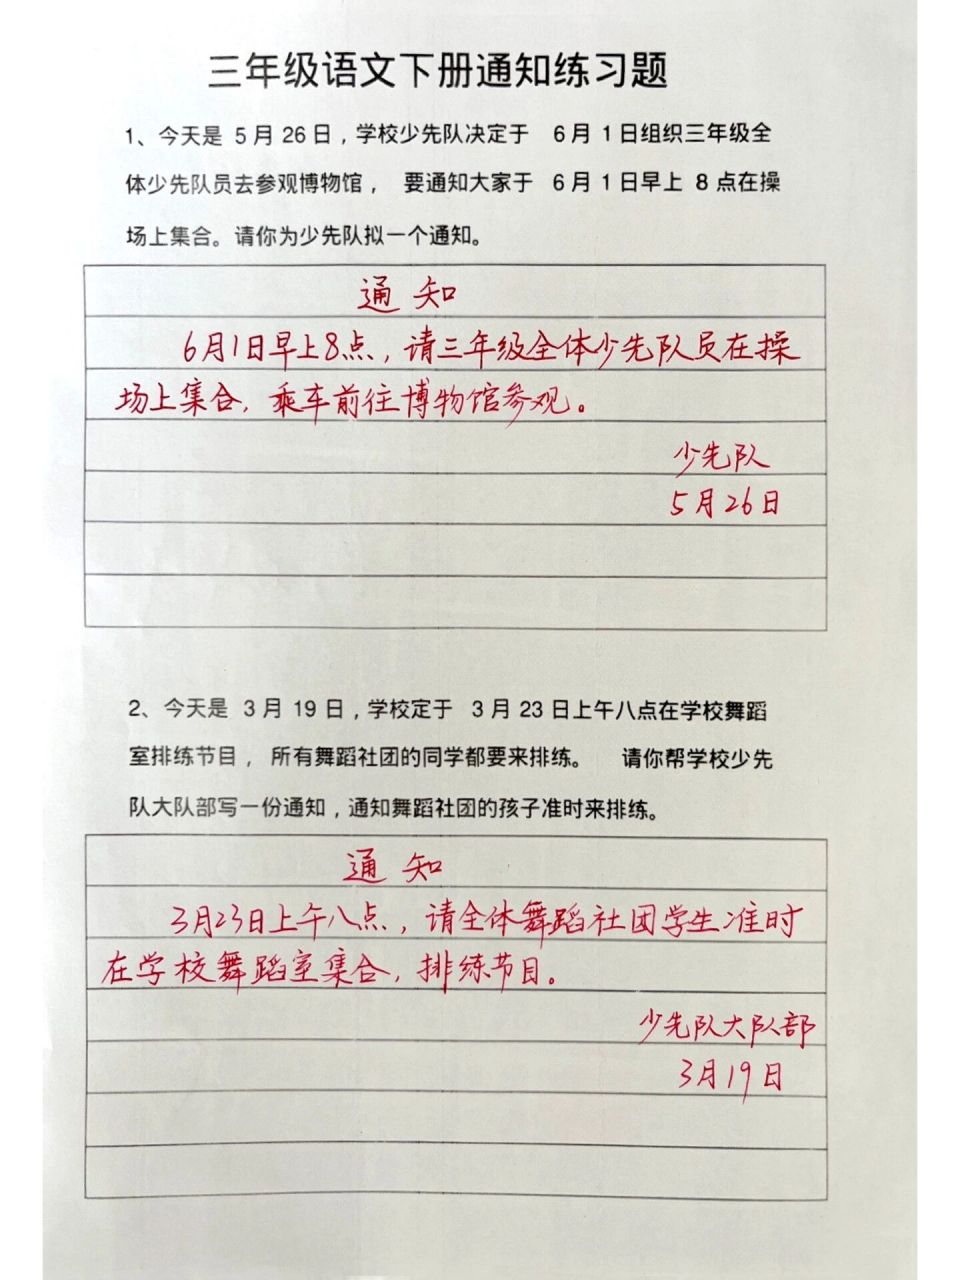 三年级语文下册通知练习题
1、今天是 5月26日,学校少先队决定于 6月1日组织三年级全
体少先队员去参观博物馆, 要通知大家于 6月1日早上 8点在操
场上集合。请你为少先队拟一个通知。
通知
6月1日早上8点,请三年级全体少先队员在操
场上集合,乘车前往博物馆参观。
少先队
5月26日
2、今天是 3月19日,学校定于 3月23日上午八点在学校舞蹈
室排练节目, 所有舞蹈社团的同学都要来排练。 请你帮学校少先
队大队部写一份通知,通知舞蹈社团的孩子准时来排练。
通知
3月23日上午八点,请全体舞蹈社团学生准时
在学校舞蹈室集合,排练节目。
少先队大队部
3月19日